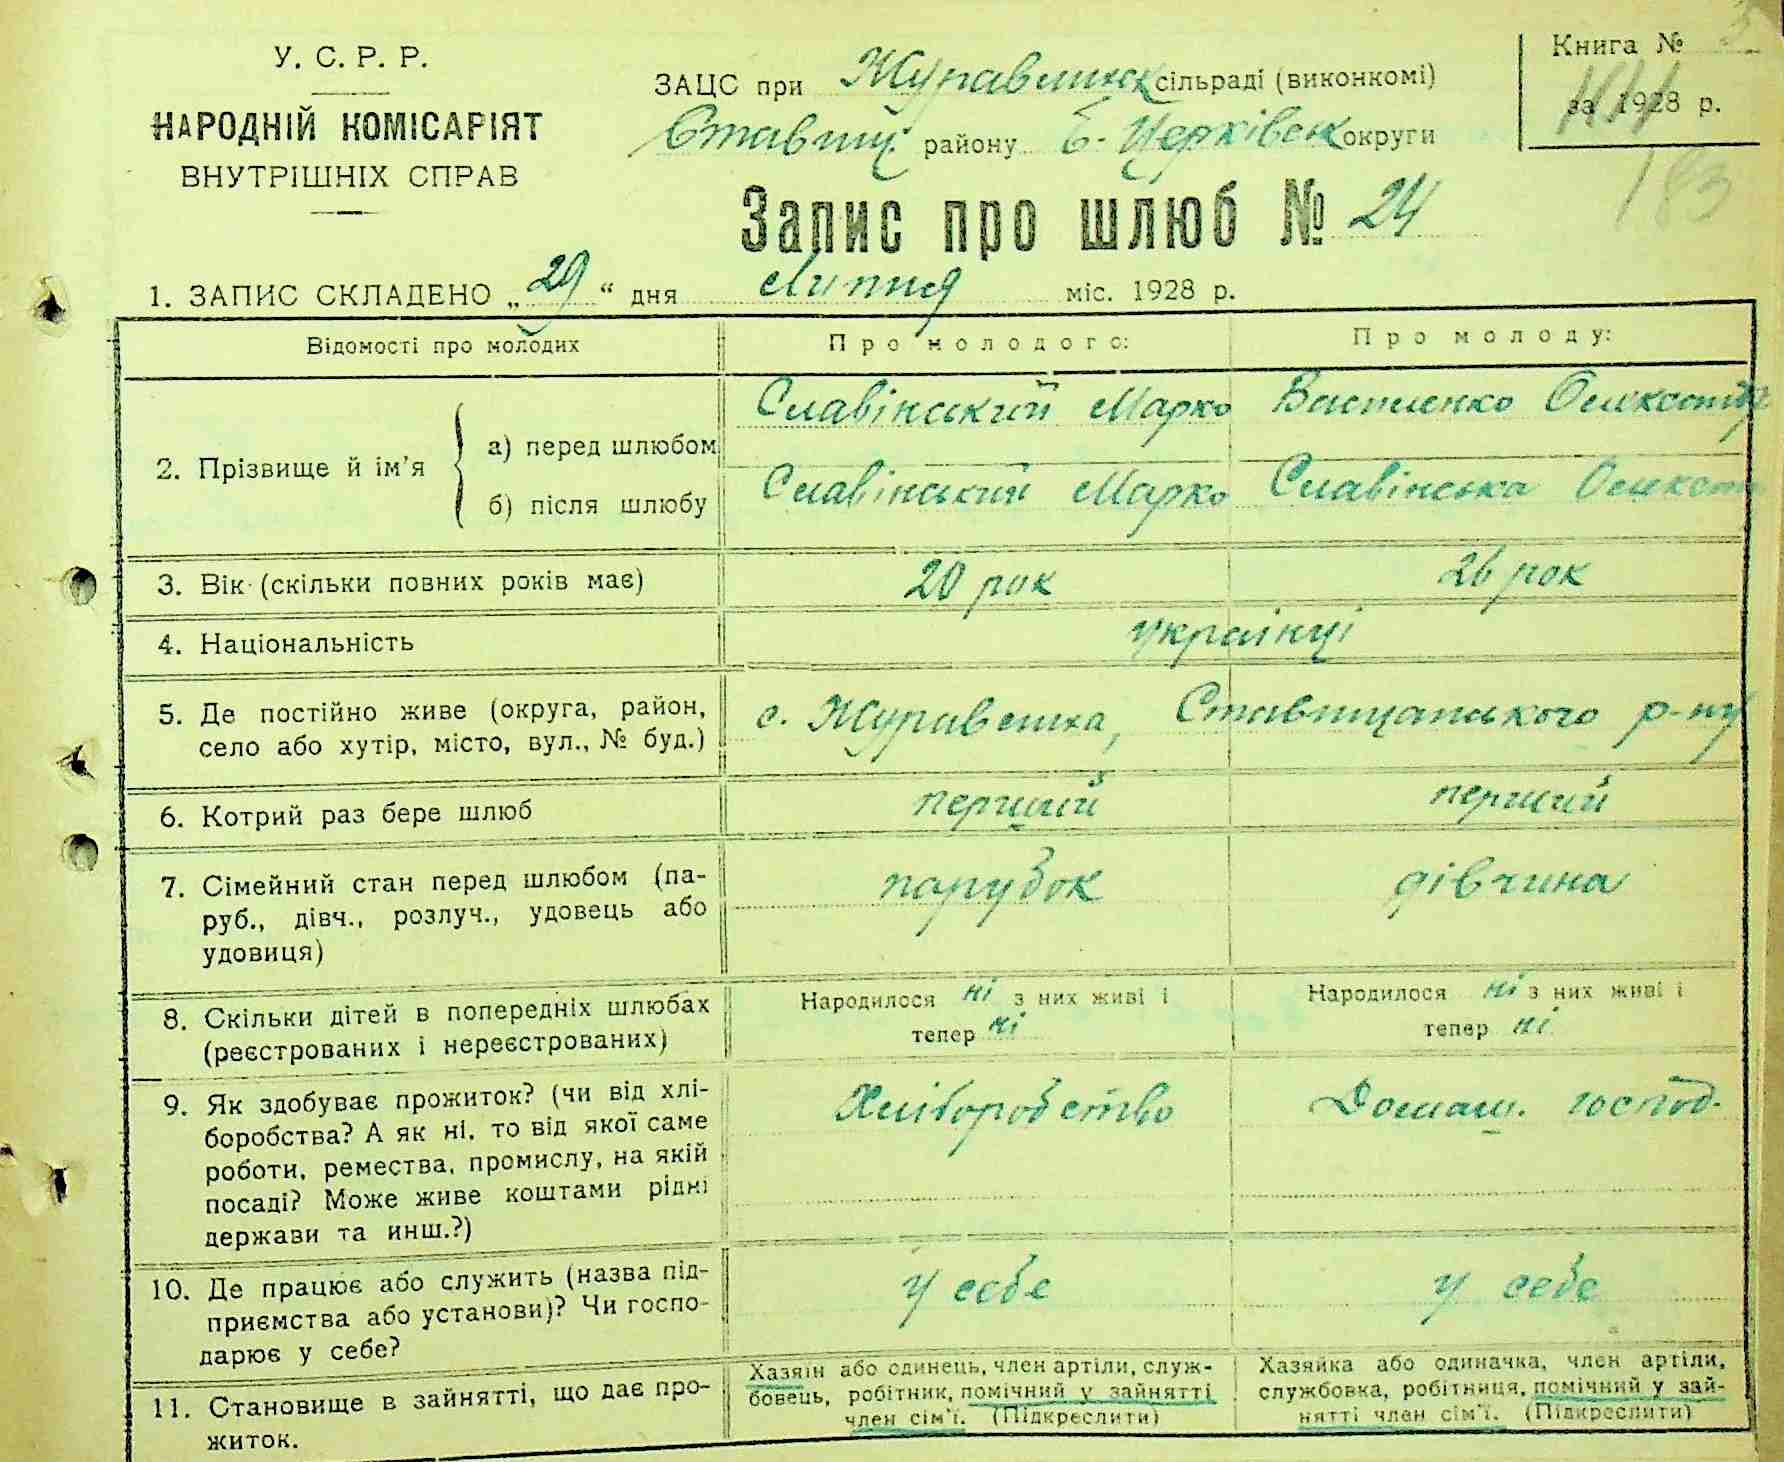 У. С. Р. Р.
НАРОДНІЙ КОМІСАРІЯТ
ВНУТРІШНІХ СПРАВ
ЗАЦС при Журавлинск сільраді (виконкомі)
Ставищ. району Б-Церківськ округи
Книга №
за 1928 р.
183
Запис про шлюб № 24
1. ЗАПИС СКЛАДЕНО „29“ дня липня міс. 1928 р.
Відомості про молодих
Про молодого:
Про молоду:
2. Прізвище й ім’я
а) перед шлюбом
Славінський Марко
Василенко Олександр
б) після шлюбу
Славінський Марко
Славінська Олексан
3. Вік (скільки повних років має)
20 рок
26 рок
4. Національність
українці
5. Де постійно живе (округа, район,
село або хутір, місто, вул., № буд.)
с. Журавлиха, Ставищанського р-ну
6. Котрий раз бере шлюб
перший
перший
7. Сімейний стан перед шлюбом (па-
руб., дівч., розлуч., удовець або
удовиця)
парубок
дівчина
8. Скільки дітей в попередніх шлюбах
(реєстрованих і нереєстрованих)
Народилося ні з них живі і
тепер ні
Народилося ні з них живі і
тепер ні
9. Як здобуває прожиток? (чи від хлі-
боробства? А як ні, то від якої саме
роботи, ремества, промислу, на якій
посаді? Може живе коштами рідні
держави та инш.?)
Хліборобство
Домаш. господ.
10. Де працює або служить (назва під-
приємства або установи)? Чи госпо-
дарює у себе?
у себе
у себе
11. Становище в зайнятті, що дає про-
житок.
Хазяїн або одинець, член артіли, служ-
бовець, робітник, помічний у зайнятті
член сім’ї. (Підкреслити)
Хазяйка або одиначка, член артіли,
службовка, робітниця, помічний у зай-
нятті член сім’ї. (Підкреслити)